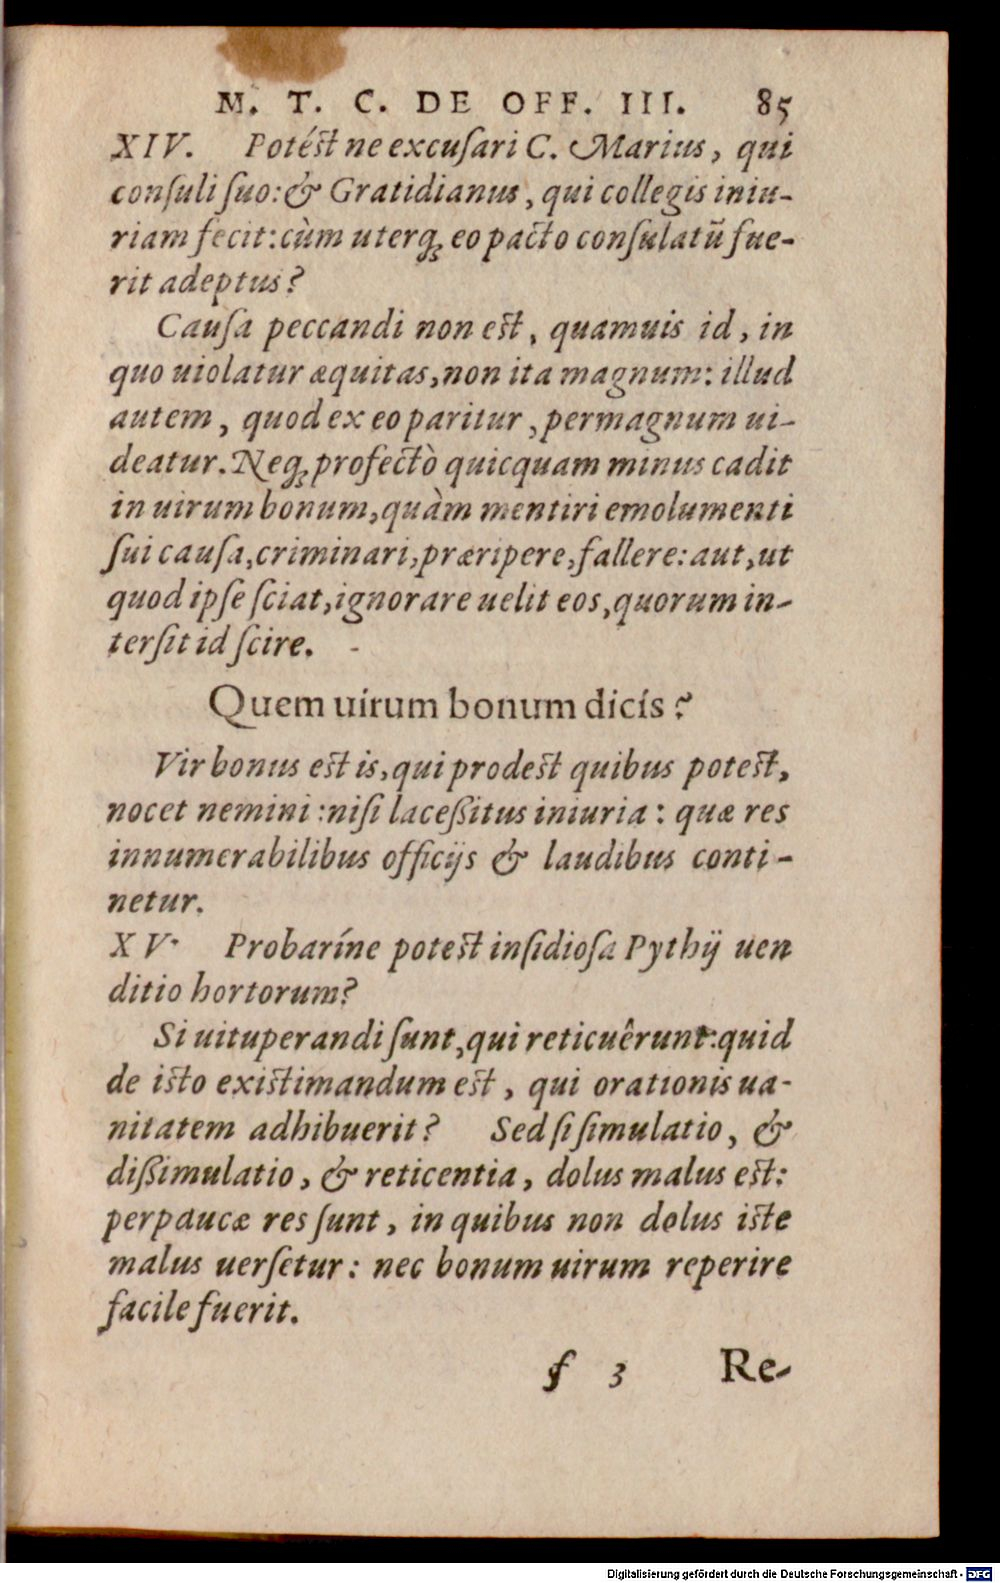 M. T. C. DE OFF. III. 85
XIV. Potést ne excuſari C. Marius, qui
conſuli ſuo: & Gratidianus, qui collegis iniu-
riam fecit: cùm uterq; eo pacto conſulatū fue-
rit adeptus?
Cauſa peccandi non est, quamuis id, in
quo uiolatur æquitas, non ita magnum: illud
autem, quod ex eo paritur, permagnum ui-
deatur. Neq; profectò quicquam minus cadit
in uirum bonum, quàm mentiri emolumenti
ſui cauſa, criminari, præripere, fallere: aut, ut
quod ipſe ſciat, ignorare uelit eos, quorum in-
terſit id ſcire.
Quem uirum bonum dicís?
Vir bonus est is, qui prodest quibus potest,
nocet nemini: niſi laceßitus iniuria: quæ res
innumerabilibus officijs & laudibus conti-
netur.
XV. Probaríne potest inſidioſa Pythij uen
ditio hortorum?
Si uituperandi ſunt, qui reticuêrunt: quid
de isto existimandum est, qui orationis ua-
nitatem adhibuerit? Sed ſi ſimulatio, &
dißimulatio, & reticentia, dolus malus est:
perpaucæ res ſunt, in quibus non dolus iste
malus uerſetur: nec bonum uirum reperire
facile fuerit.
f 3 Re-
Digitalisierung gefördert durch die Deutsche Forschungsgemeinschaft - DFG